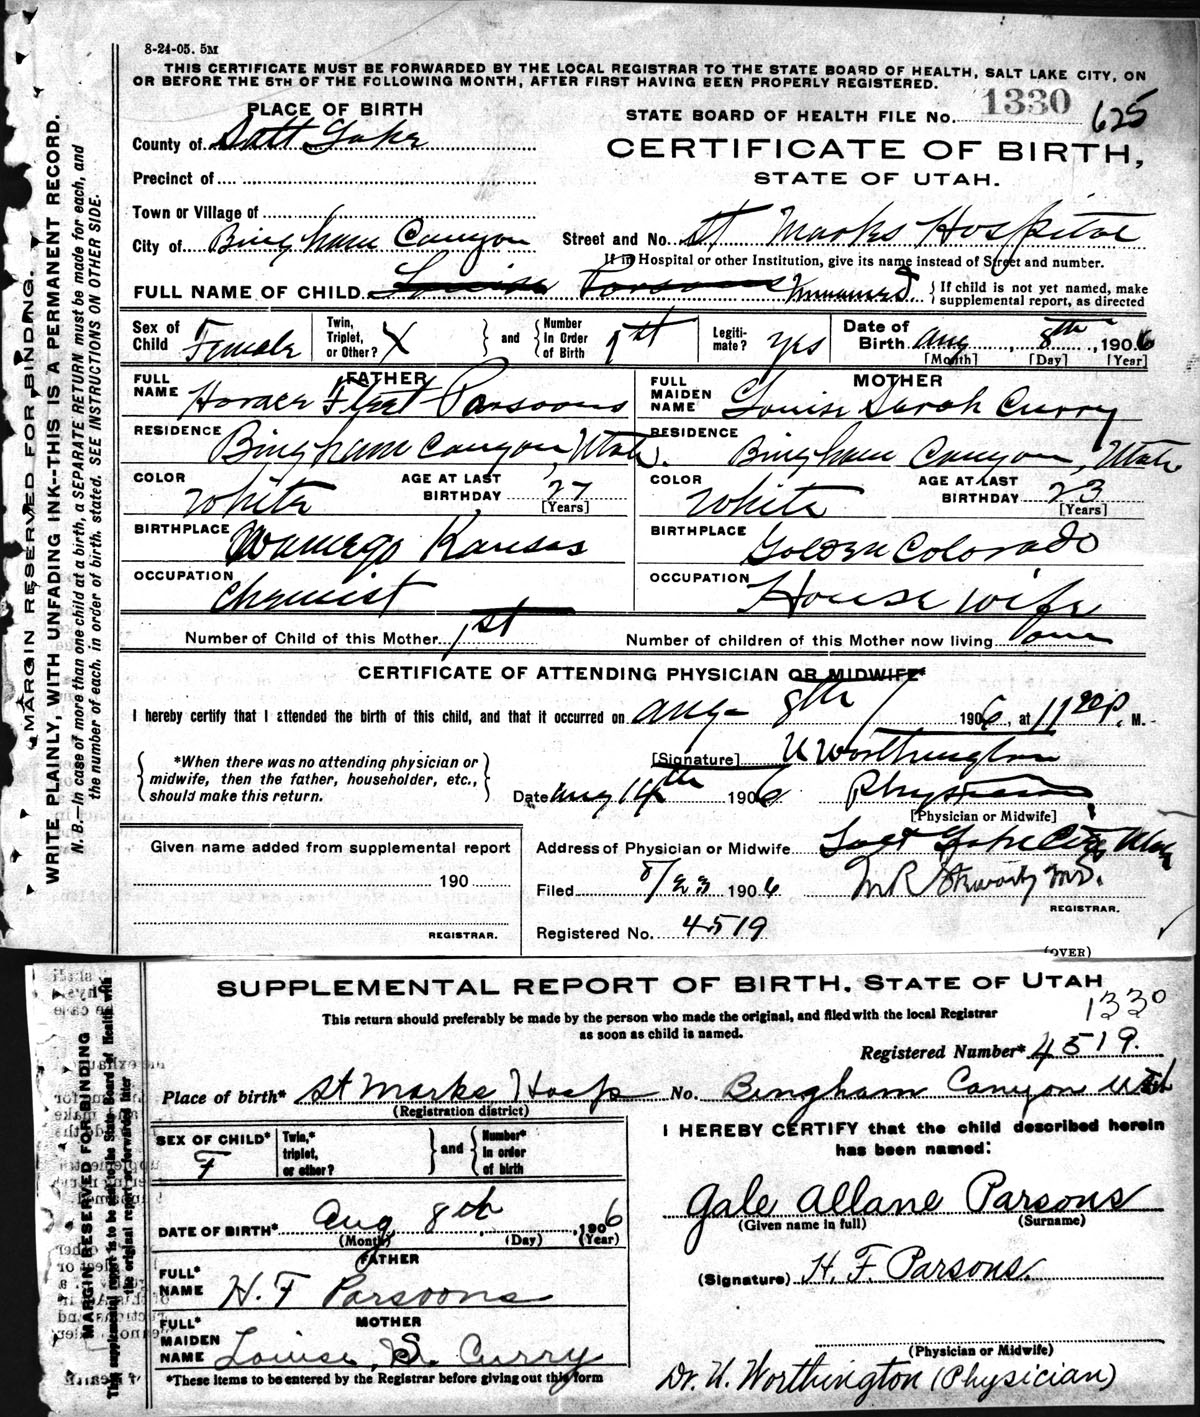 8-24-05. 5M
THIS CERTIFICATE MUST BE FORWARDED BY THE LOCAL REGISTRAR TO THE STATE BOARD OF HEALTH, SALT LAKE CITY, ON
OR BEFORE THE 5TH OF THE FOLLOWING MONTH, AFTER FIRST HAVING BEEN PROPERLY REGISTERED.
MARGIN RESERVED FOR BINDING.
WRITE PLAINLY, WITH UNFADING INK--THIS IS A PERMANENT RECORD.
N. B.—In case of more than one child at a birth, a SEPARATE RETURN must be made for each, and
the number of each, in order of birth, stated. SEE INSTRUCTIONS ON OTHER SIDE.
PLACE OF BIRTH
County of Salt Lake
Precinct of
Town or Village of
City of Bingham Canyon
STATE BOARD OF HEALTH FILE No. 1330 625
CERTIFICATE OF BIRTH,
STATE OF UTAH.
Street and No. St Marks Hospital
If in Hospital or other Institution, give its name instead of Street and number.
FULL NAME OF CHILD Louise Parsons Unnamed
If child is not yet named, make
supplemental report, as directed
Sex of Child Female
Twin, Triplet, or Other? X
and
Number In Order of Birth 1st
Legitimate? yes
Date of Birth Aug 8th, 1906
[Month] [Day] [Year]
FATHER
FULL NAME Horace Fleet Parsoons
RESIDENCE Bingham Canyon, Utah.
COLOR White
AGE AT LAST BIRTHDAY 27
[Years]
BIRTHPLACE Wamego Kansas
OCCUPATION Chemist
MOTHER
FULL MAIDEN NAME Louise Sarah Curry
RESIDENCE Bingham Canyon, Utah
COLOR White
AGE AT LAST BIRTHDAY 23
[Years]
BIRTHPLACE Golden Colorado
OCCUPATION House wife
Number of Child of this Mother 1st
Number of children of this Mother now living one
CERTIFICATE OF ATTENDING PHYSICIAN OR MIDWIFE*
I hereby certify that I attended the birth of this child, and that it occurred on Aug- 8th 1906, at 11 20 P. M.
*When there was no attending physician or
midwife, then the father, householder, etc.,
should make this return.
[Signature] U Worthington
Date Aug 14th 1906 Physician
[Physician or Midwife]
Given name added from supplemental report
190
REGISTRAR.
Address of Physician or Midwife Salt Lake City Utah
Filed 8/23 1906 M R Stewart M.D.
REGISTRAR.
Registered No. 4519
(OVER)
SUPPLEMENTAL REPORT OF BIRTH. STATE OF UTAH
1330
This return should preferably be made by the person who made the original, and filed with the local Registrar
as soon as child is named.
MARGIN RESERVED FOR BINDING
Registered Number* 4519.
Place of birth* St Marks Hosp No. Bingham Canyon Utah
(Registration district)
SEX OF CHILD* F
Twin,* triplet, or other?
and
Number* In order of birth
DATE OF BIRTH* Aug 8th, 1906
(Month) (Day) (Year)
FATHER
FULL* NAME H. F Parsoons
MOTHER
FULL* MAIDEN NAME Louise S. Curry
*These items to be entered by the Registrar before giving out this form
I HEREBY CERTIFY that the child described herein
has been named:
Gale Allane Parsons
(Given name in full) (Surname)
(Signature) H. F. Parsons.
(Physician or Midwife)
Dr. U. Worthington (Physician)